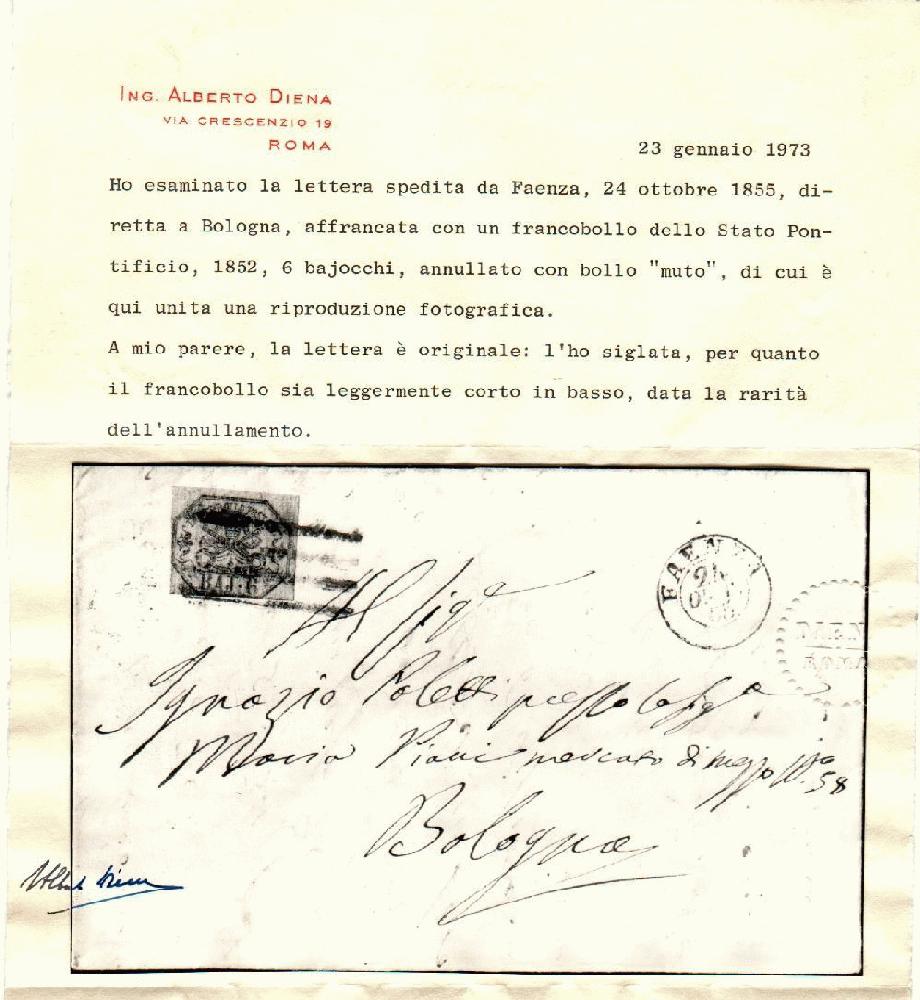 ING. ALBERTO DIENA
VIA CRESCENZIO 19
ROMA
23 gennaio 1973
Ho esaminato la lettera spedita da Faenza, 24 ottobre 1855, di-
retta a Bologna, affrancata con un francobollo dello Stato Pon-
tificio, 1852, 6 bajocchi, annullato con bollo "muto", di cui è
qui unita una riproduzione fotografica.
A mio parere, la lettera è originale: l'ho siglata, per quanto
il francobollo sia leggermente corto in basso, data la rarità
dell'annullamento.
BAJ. 6
FAENZA
24
ROMA
Ignazio Poletti presso la
Maria mercato di mezzo No. 58
Bologna